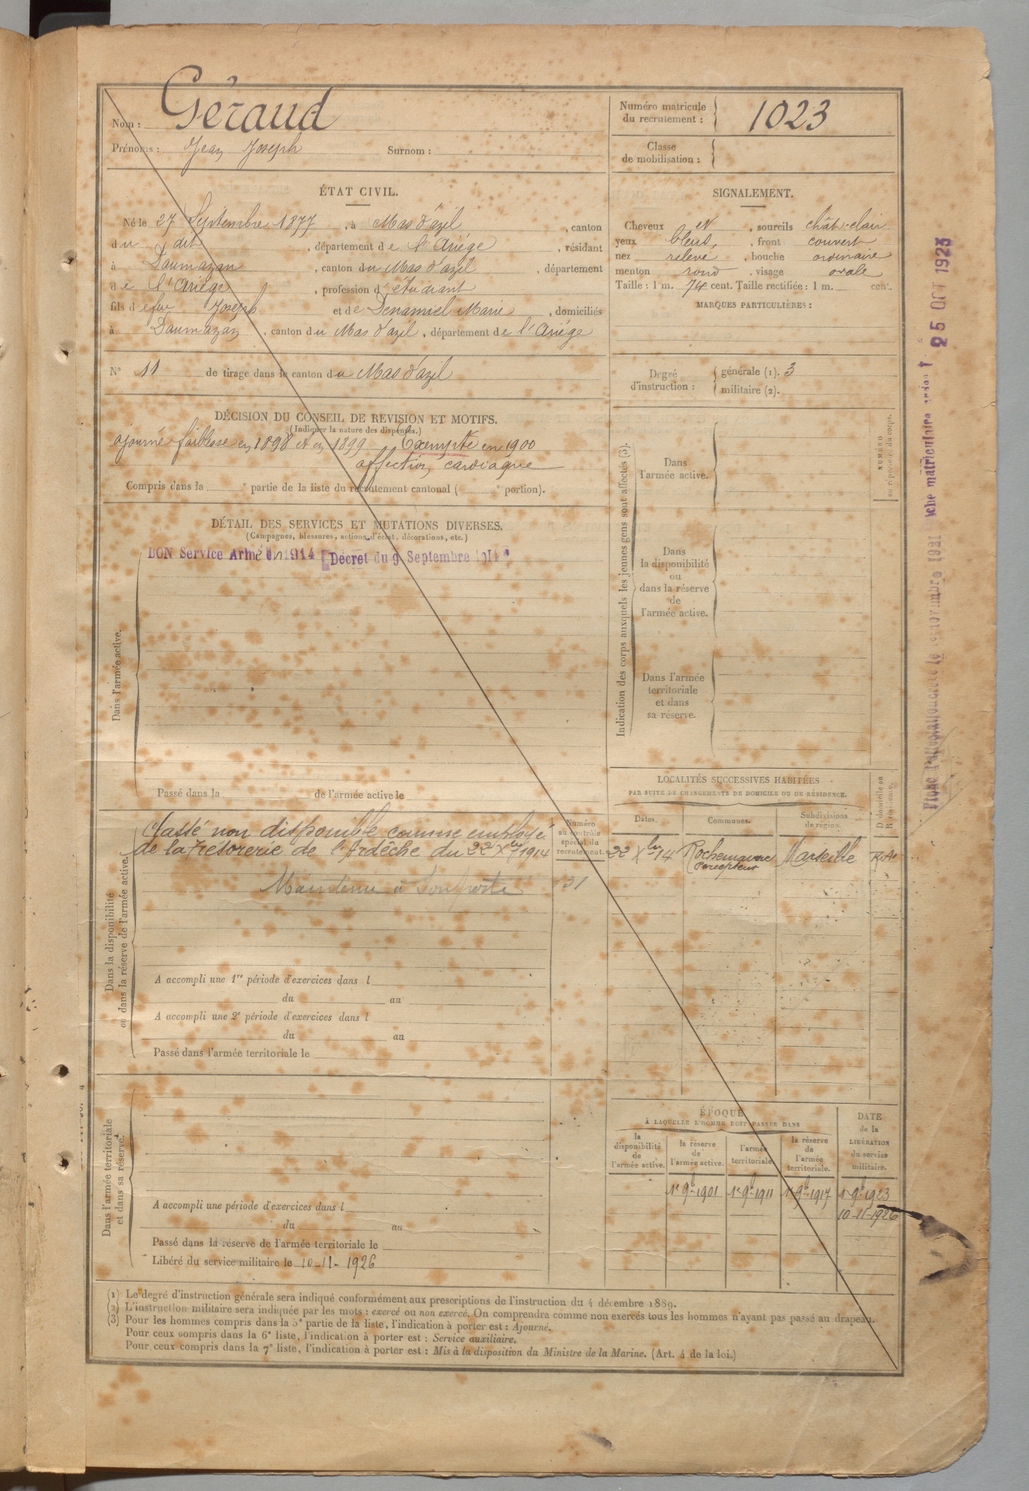 Nom : Géraud
Prénoms : Jean Joseph Surnom :
Numéro matricule du recrutement : 1023
Classe de mobilisation :
ÉTAT CIVIL.
Né le 27 Septembre 1877, à Mas d'azil, canton
du dit, département de l'Ariège, résidant
à Daumazan, canton du Mas d'azil, département
de l'Ariège, profession d'étudiant
fils de feu Joseph et de Denamiel Marie, domiciliés
à Daumazan, canton du Mas d'azil, département de l'Ariège
N° 11 de tirage dans le canton du Mas d'azil
SIGNALEMENT.
Cheveux et, sourcils chât-clair
yeux bleus, front couvert
nez relevé, bouche ordinaire
menton rond, visage ovale
Taille : 1 m. 74 cent. Taille rectifiée : 1 m. cent.
MARQUES PARTICULIÈRES :
Degré d'instruction : générale (1). 3
militaire (2).
DÉCISION DU CONSEIL DE REVISION ET MOTIFS.
(Indiquer la nature des dispenses.)
ajourné faiblesse en 1898 et en 1899 - Exempté en 1900
affection cardiaque
Compris dans la partie de la liste du recrutement cantonal ( portion).
DÉTAIL DES SERVICES ET MUTATIONS DIVERSES.
(Campagnes, blessures, actions d'éclat, décorations, etc.)
BON Service Armé en 1914 Décret du 9 Septembre 1914
Dans l'armée active.
Passé dans la de l'armée active le
Indication des corps auxquels les jeunes gens sont affectés (3).
NUMÉRO
Dans l'armée active.
Dans la disponibilité ou dans la réserve de l'armée active.
Dans l'armée territoriale et dans sa réserve.
25 OCT 1923
Dans la disponibilité ou dans la réserve de l'armée active.
Classé non disponible comme employé
de la Trésorerie de l'Ardèche du 22 Xbre 1914
Maintenu à
31
Numéro au contrôle spécial du recrutement.
A accompli une 1re période d'exercices dans l
du au
A accompli une 2e période d'exercices dans l
du au
Passé dans l'armée territoriale le
LOCALITÉS SUCCESSIVES HABITÉES
PAR SUITE DE CHANGEMENTS DE DOMICILE OU DE RÉSIDENCE.
Dates. Communes. Subdivisions de région. D domicile ou R résidence.
22 Xbre 14 Rochemaure Marseille
Percepteur
Dans l'armée territoriale et dans sa réserve.
A accompli une période d'exercices dans l
du au
Passé dans la réserve de l'armée territoriale le
Libéré du service militaire le 10-11-1926
ÉPOQUE
À LAQUELLE L'HOMME DOIT PASSER DANS
la disponibilité de l'armée active. la réserve de l'armée active. l'armée territoriale. la réserve de l'armée territoriale. DATE de la LIBÉRATION du service militaire.
1er 9bre 1901 1er 9bre 1911 1er 9bre 1917 1er 9bre 1923
10-11-1926
(1) Le degré d'instruction générale sera indiqué conformément aux prescriptions de l'instruction du 4 décembre 1889.
(2) L'instruction militaire sera indiquée par les mots : exercé ou non exercé. On comprendra comme non exercés tous les hommes n'ayant pas passé au drapeau.
(3) Pour les hommes compris dans la 5e partie de la liste, l'indication à porter est : Ajourné.
Pour ceux compris dans la 6e liste, l'indication à porter est : Service auxiliaire.
Pour ceux compris dans la 7e liste, l'indication à porter est : Mis à la disposition du Ministre de la Marine. (Art. 4 de la loi.)